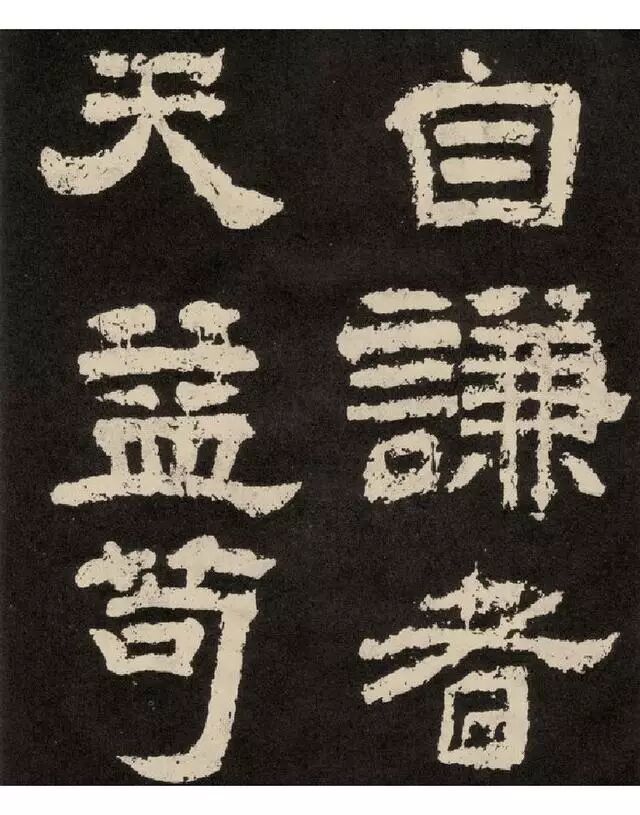 自謙者
天益苟